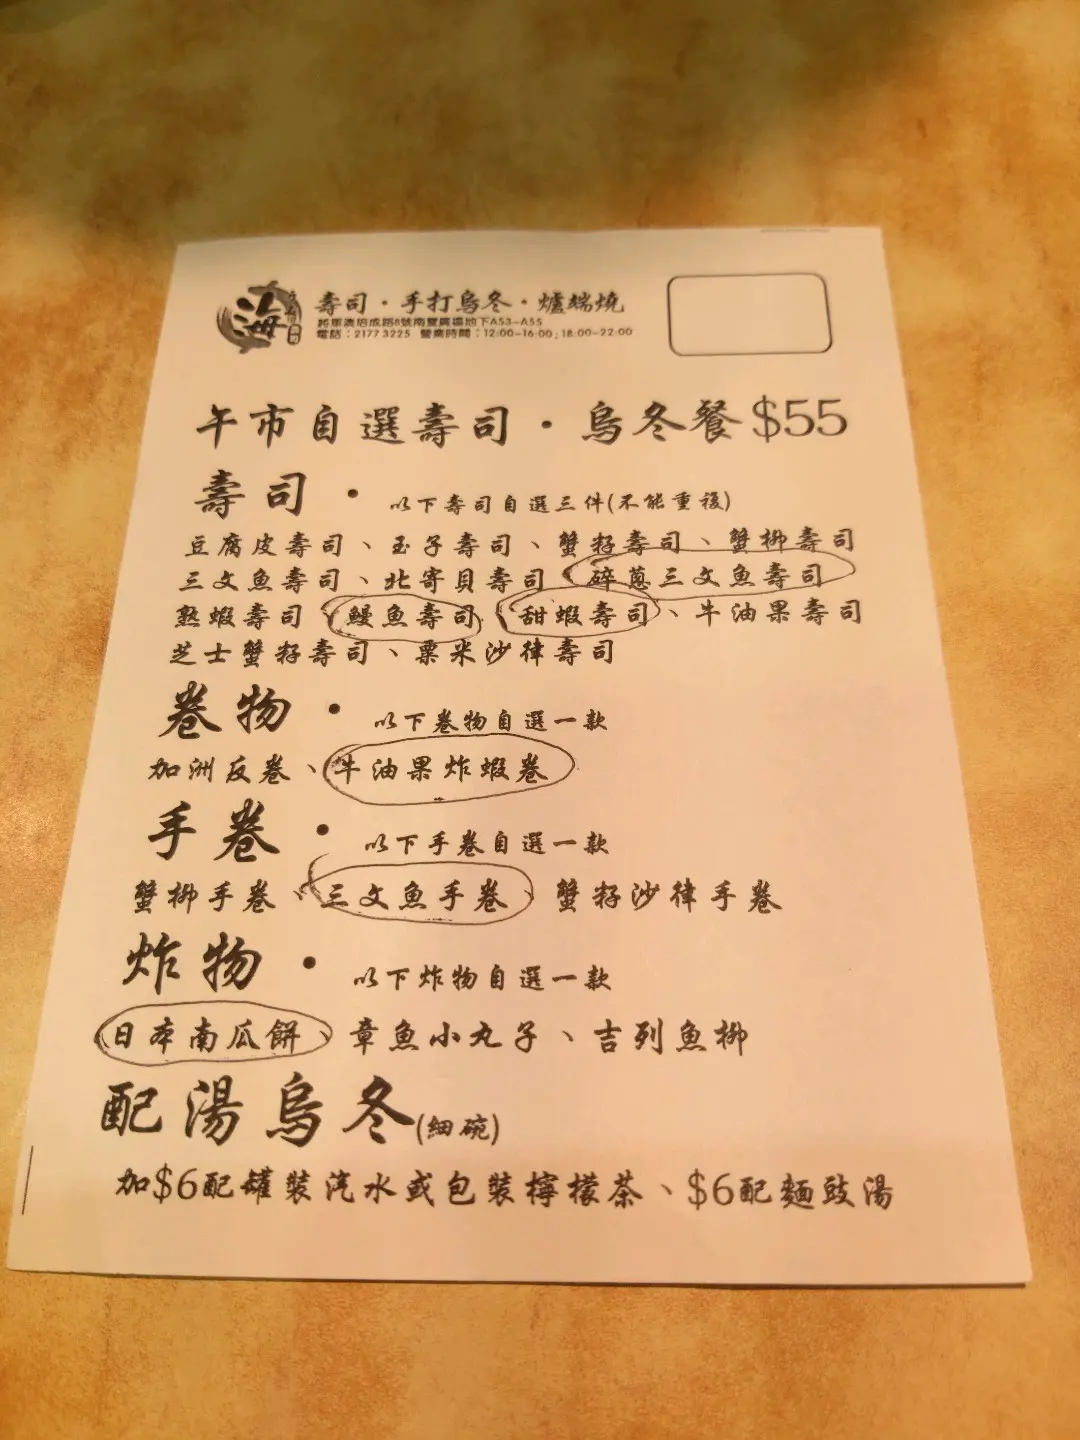 海
壽司・手打烏冬・爐端燒
將軍澳培成路8號南豐廣場地下A53-A55
電話：2177 3225 營業時間：12:00-16:00；18:00-22:00
午市自選壽司・烏冬餐$55
壽司・以下壽司自選三件(不能重複)
豆腐皮壽司、玉子壽司、蟹籽壽司、蟹柳壽司
三文魚壽司、北寄貝壽司 碎蔥三文魚壽司
熟蝦壽司、鰻魚壽司、甜蝦壽司、牛油果壽司
芝士蟹籽壽司、粟米沙律壽司
卷物・以下卷物自選一款
加洲反卷、牛油果炸蝦卷
手卷・以下手卷自選一款
蟹柳手卷、三文魚手卷、蟹籽沙律手卷
炸物・以下炸物自選一款
日本南瓜餅、章魚小丸子、吉列魚柳
配湯烏冬(細碗)
加$6配罐裝汽水或包裝檸檬茶、$6配麵豉湯